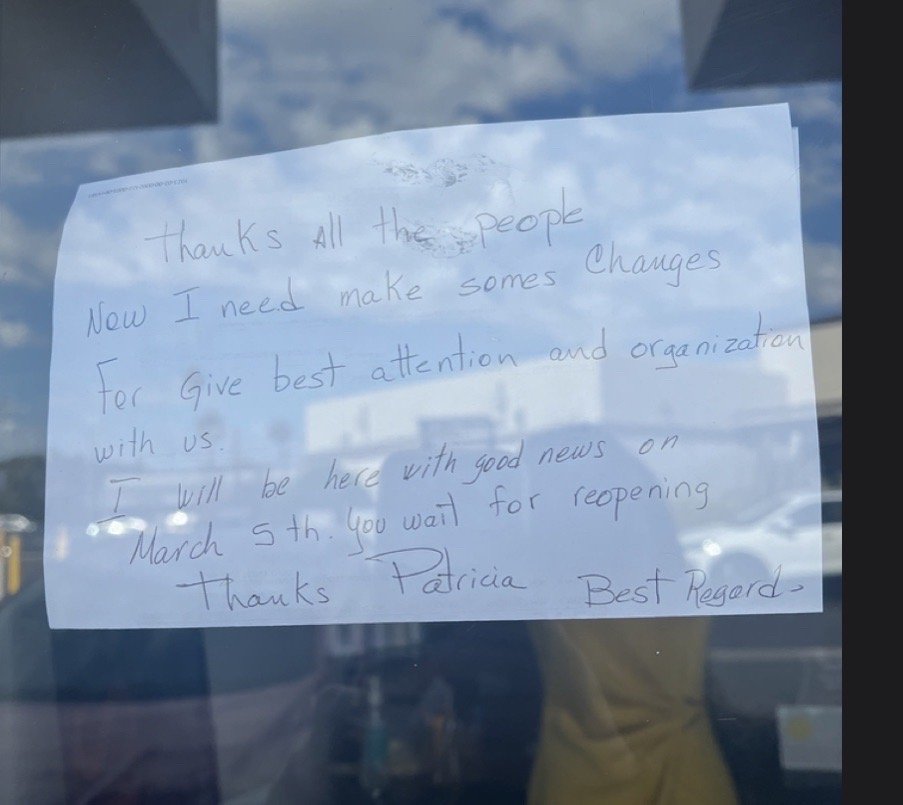 Thanks All the people
Now I need make somes Changes
For Give best attention and organization
with us.
I will be here with good news on
March 5th. You wait for reopening
Thanks Patricia Best Regard-